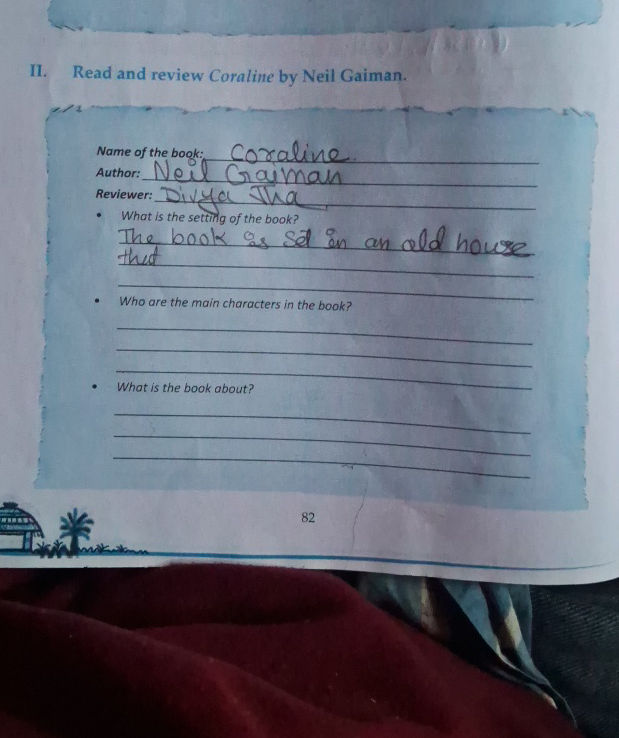 II. Read and review Coraline by Neil Gaiman.
Name of the book: Coraline.
Author: Neil Gaiman
Reviewer: Divya Jha
• What is the setting of the book?
The book is set in an old house
that
• Who are the main characters in the book?
• What is the book about?
82